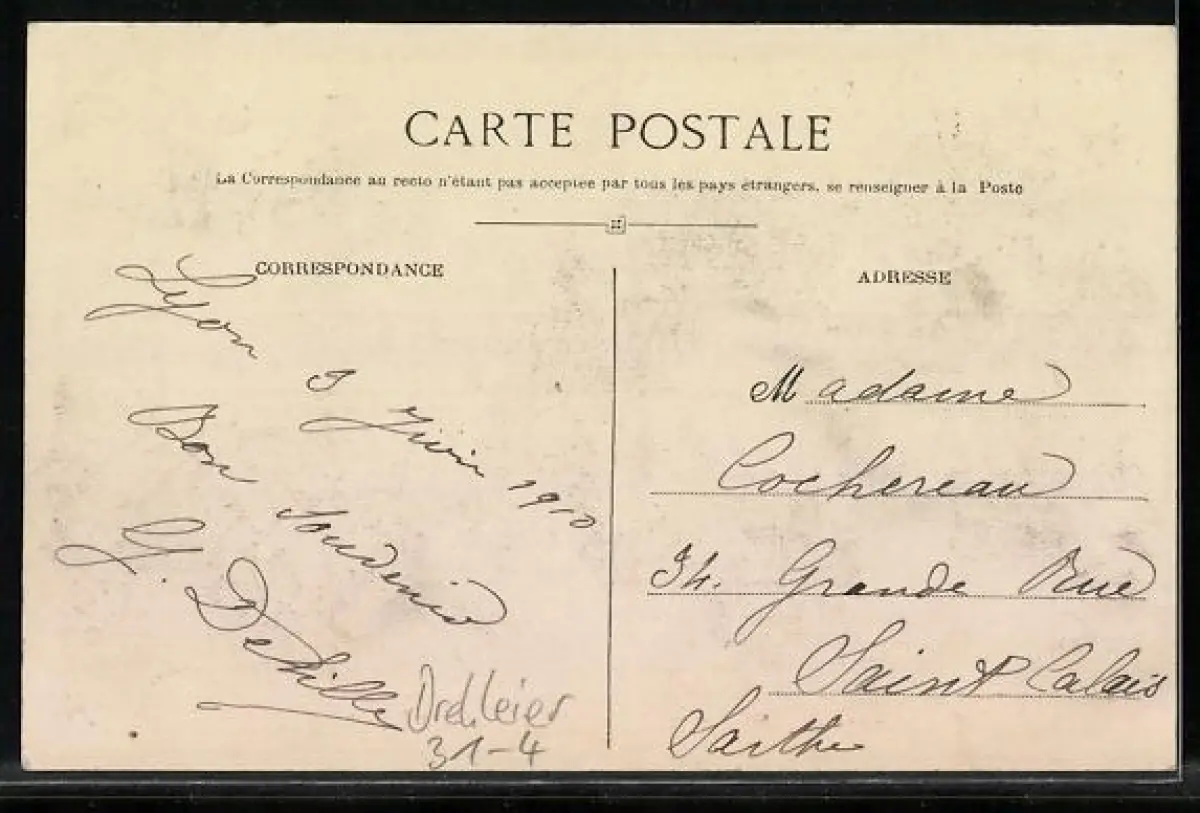 CARTE POSTALE
La Correspondance au recto n'étant pas acceptée par tous les pays étrangers, se renseigner à la Poste
CORRESPONDANCE
Lyon
3 Juin 1910
Bon Souvenir
G.
ADRESSE
Madame
Cochereau
34. Grande Rue
Saint Calais
Sarthe
31-4